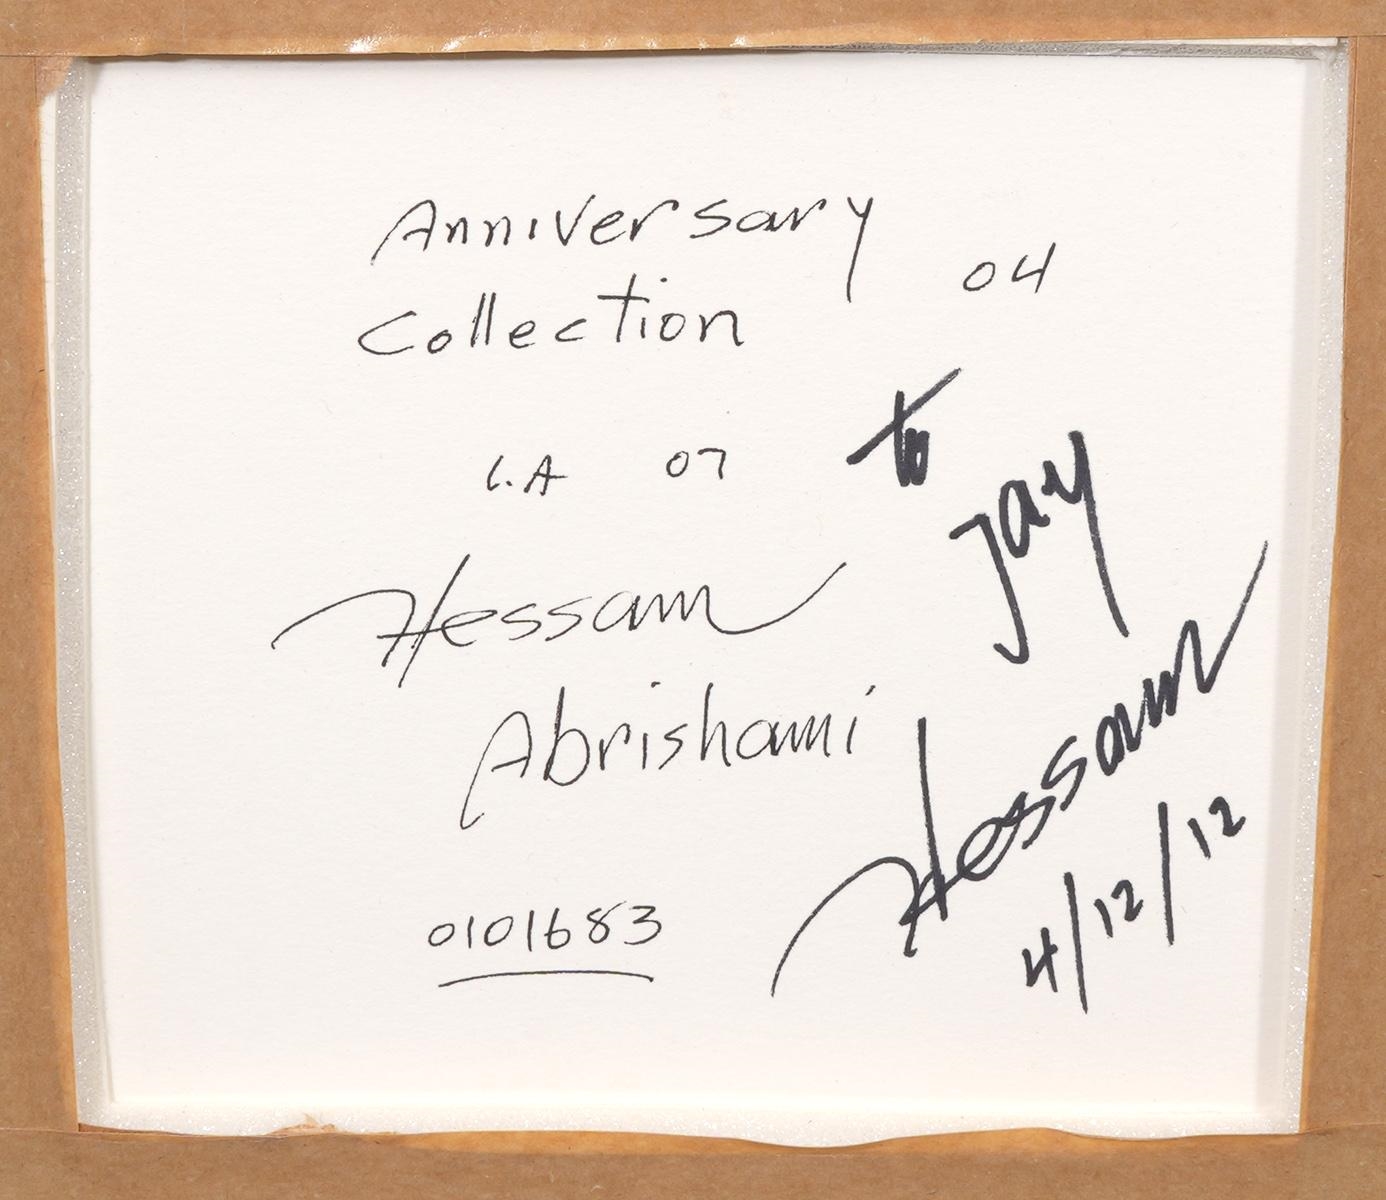 Anniversary
Collection
04
L.A 07
Hessam
Abrishami
0101683
to
Jay
Hessam
4/12/12